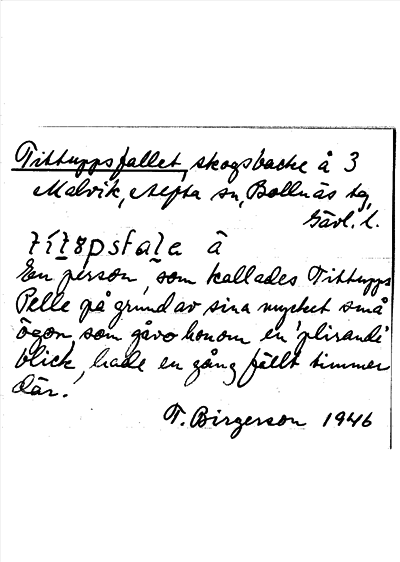 Tittuppsfallet, skogsbacke å 3
Malvik, Alfta sn, Bollnäs tg,
Gävl. l.
títupsfale â
En person, som kallades Tittupps
Pelle på grund av sina mycket små
ögon, som gåvo honom en 'plirande'
blick, hade en gång fällt timmer
där.
T. Birgerson 1946